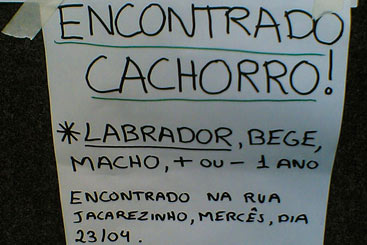 ENCONTRADO
CACHORRO!
*LABRADOR, BEGE,
MACHO, + OU - 1 ANO
ENCONTRADO NA RUA
JACAREZINHO, MERCÊS, DIA
23/04.